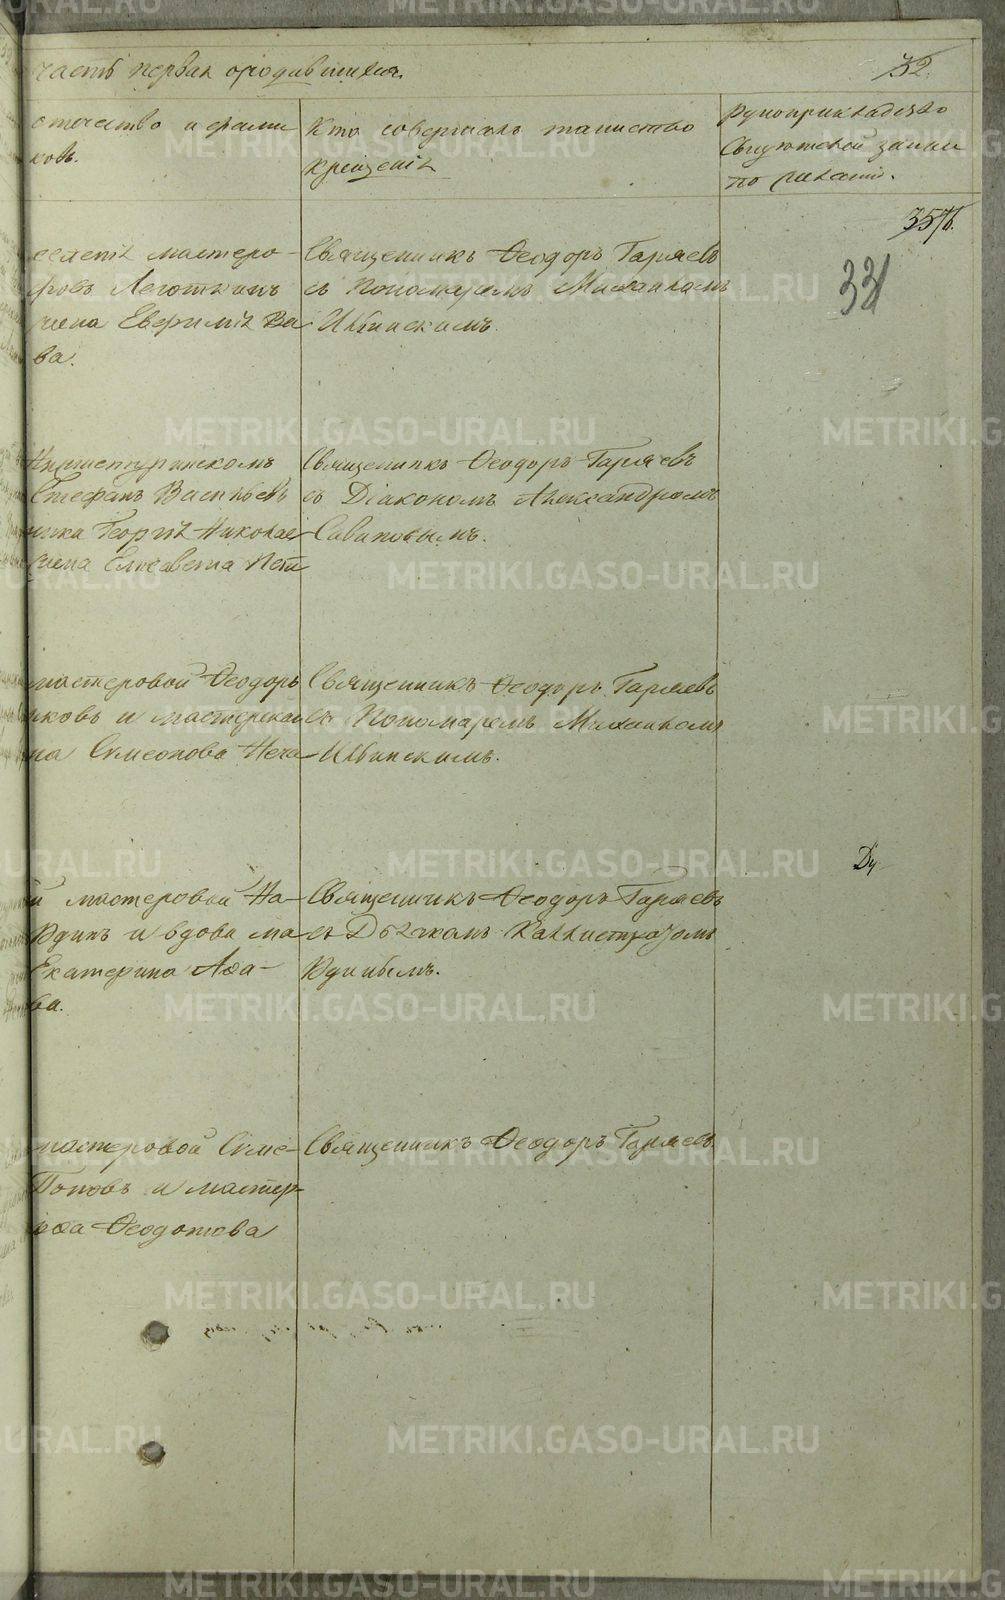 часть первая о родившихся.
32.
отчество и фами
ковъ.
Кто совершалъ таинство
крещенія
Рукоприкладство
свидѣтелей записи
по желанію.
357/б.
33
мастеро-
ровъ Леготкинъ
чена Евѳимія Ва
ва.
Священникъ Ѳеодоръ Гаряевъ
съ Пономаремъ Михаиломъ
Ивинскимъ.
Нижнетуринскомъ
Стефанъ Васильевъ
ника Георгія Николае
чена Елисавета Пет
Священникъ Ѳеодоръ Гаряевъ
съ Діакономъ Александромъ
Савиновымъ.
мастеровой Ѳеодоръ
иковъ и мастерская
на Симеонова Неча
Священникъ Ѳеодоръ Гаряевъ
съ Пономаремъ Михаиломъ
Ивинскимъ.
й мастеровой На-
Юдинъ и вдова ма
Екатерина Аѳа-
ва.
Священникъ Ѳеодоръ Гаряевъ
съ Дьячкомъ Каллистратомъ
Юдинымъ.
мастеровой Симе-
Поповъ и мастер-
Ѳеодотова
Священникъ Ѳеодоръ Гаряевъ
METRIKI.GASO-URAL.RU